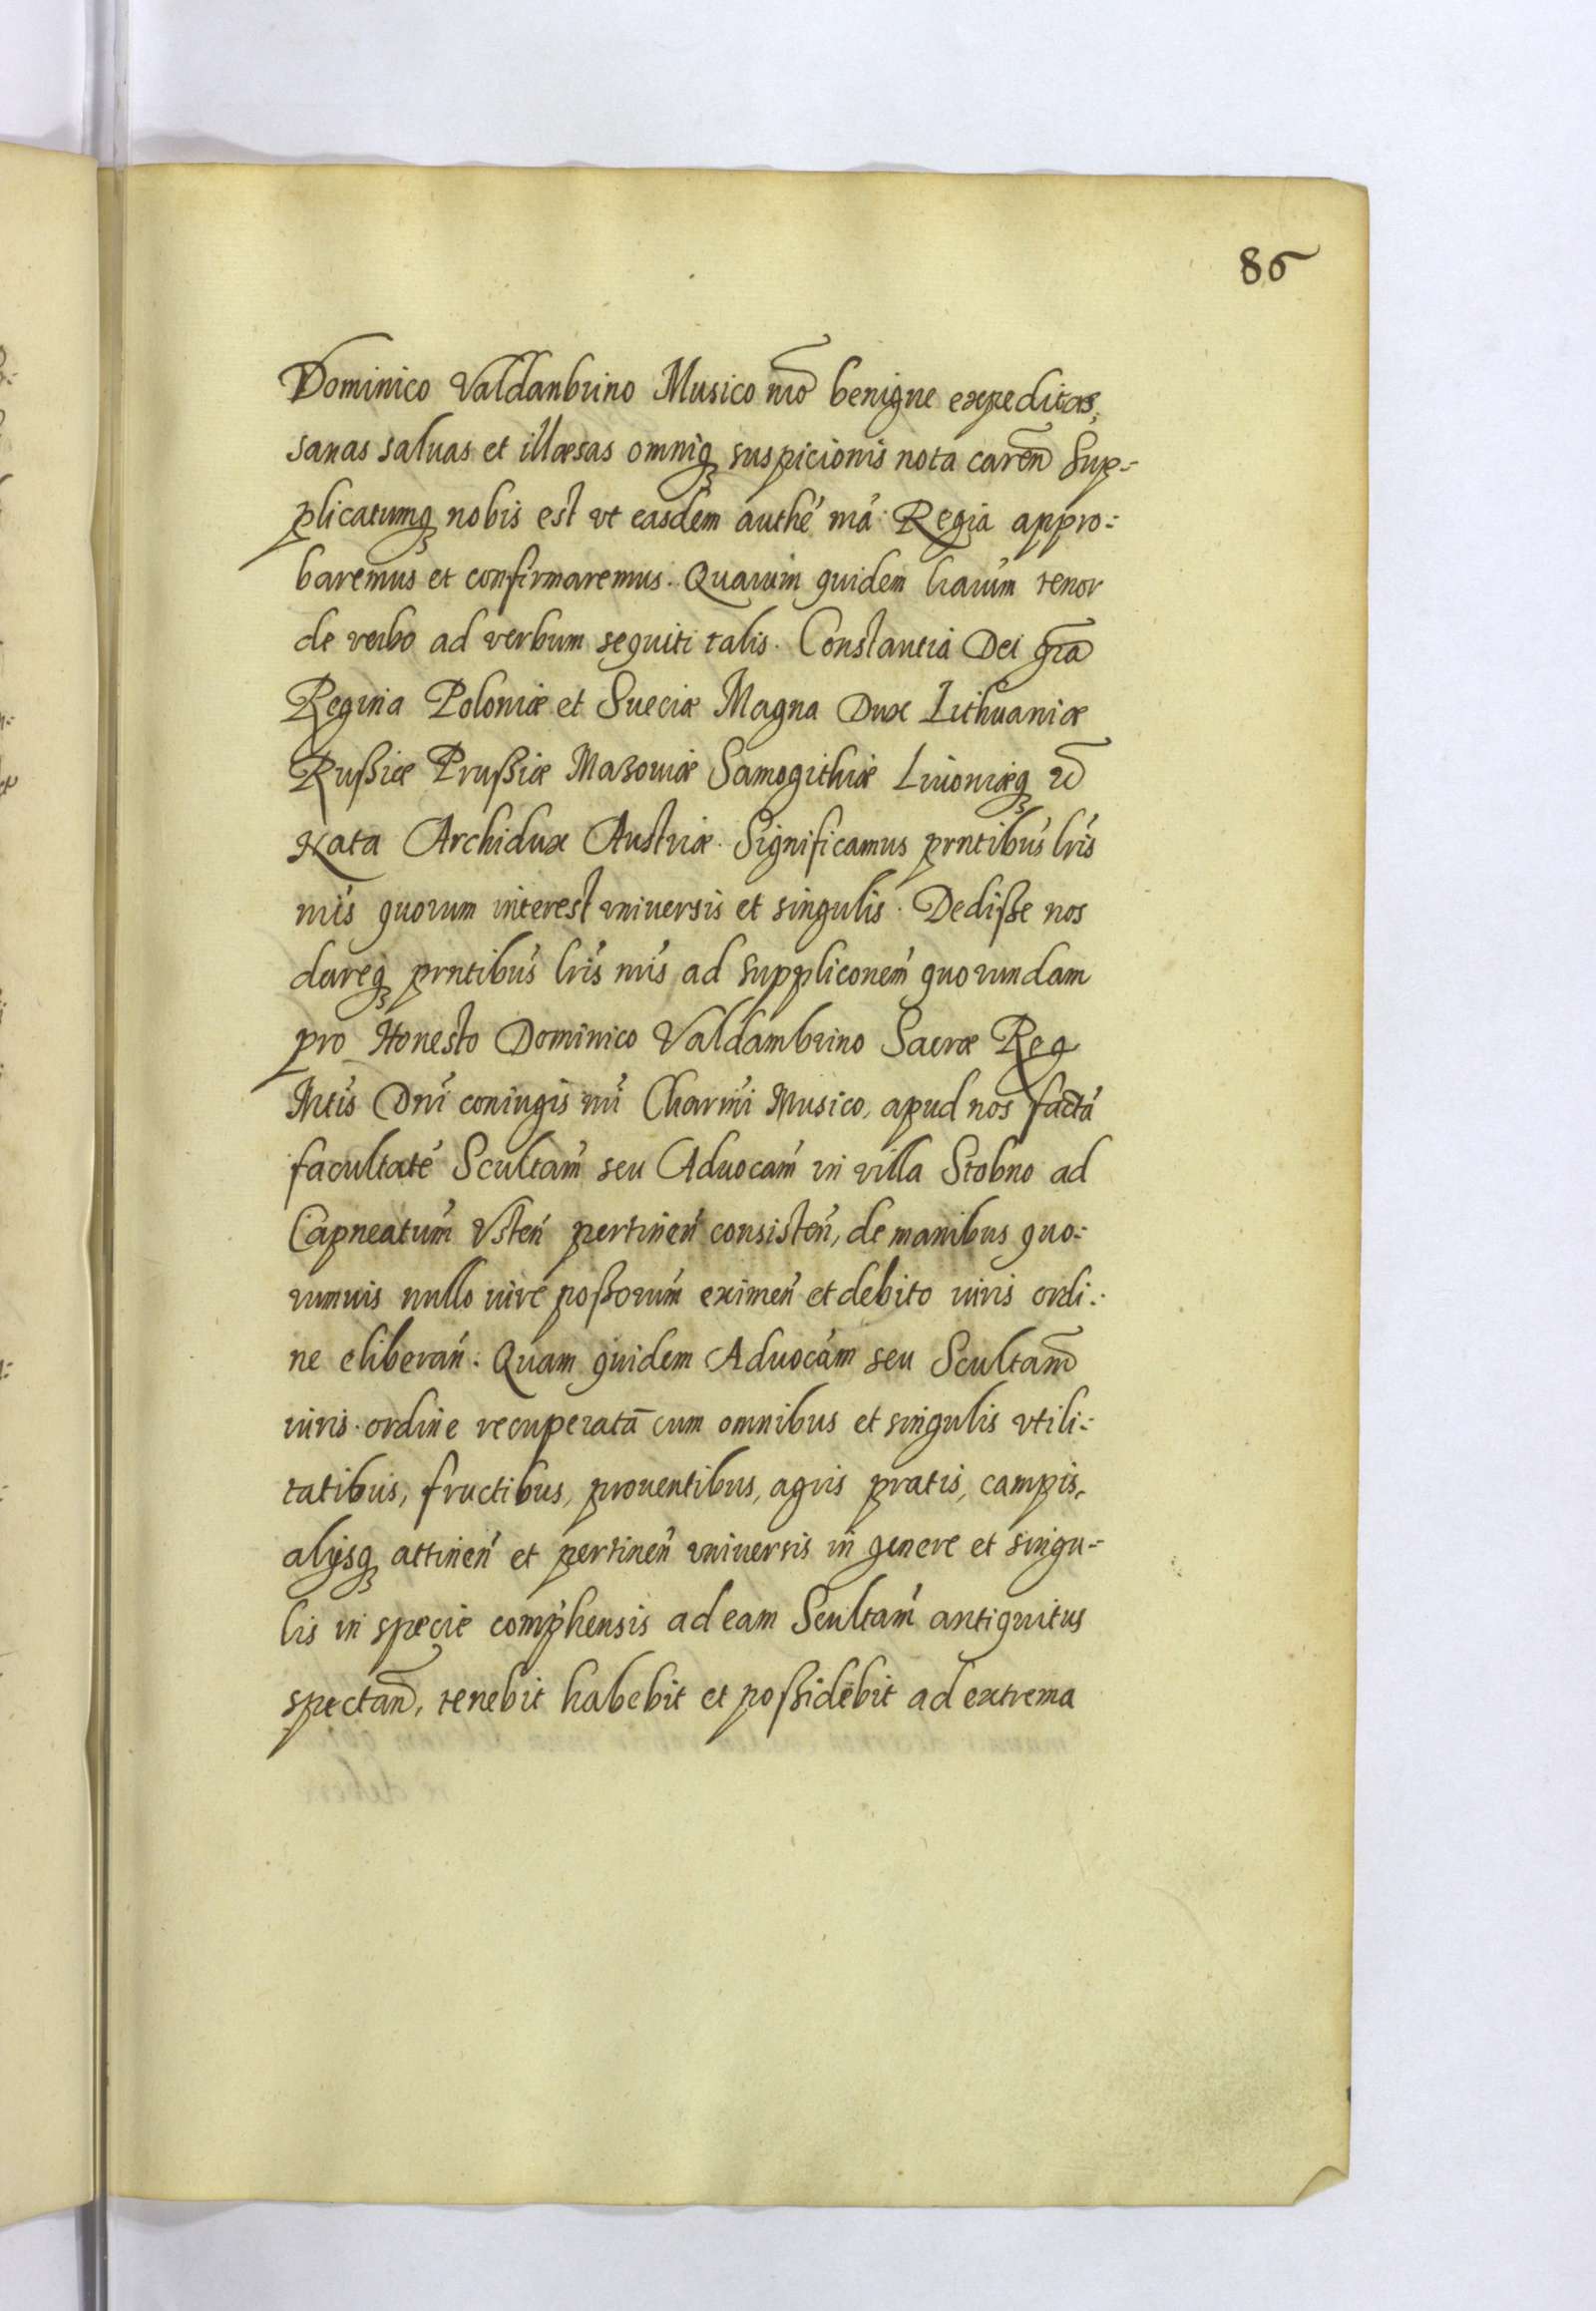 86
Dominico Valdanbrino Musico nrõ benigne expeditas,
sanas saluas et illæsas omniq̃ suspicionis nota careñ Sup=
plicatumq̃ nobis est vt easdem authé nrá: Regia appro=
baremus et confirmaremus. Quarum quidem lrarúm tenor
de verbo ad verbum sequiti talis. Constantia Dei grã
Regina Poloniæ et Sueciæ Magna Dux Lithuaniæ
Rußiæ Prußiæ Mazouiæ Samogithiæ Liuoniæq̃
Nata Archidux Austriæ. Significamus prntibús lrís
nrís quorum interest vniuersis et singulis. Dediße nos
dareq̃ prntibús lrís nrís ad suppliconém quorundam
pro Honesto Dominico Valdambrino Sacræ Reg
Mtís Dní coniugis nrí Charmí Musico, apud nos factá
facultaté Scultam̃ seu Aduocam̃ in villa Stobno ad
Capneatum̃ Vsteñ pertineñ consisteñ, de manibus quo=
rumuis nullo iure poßorúm eximeñ et debito iuris ordi=
ne eliberañ: Quam quidem Aduocám seu Scultam̃
iuris ordine recuperatã cum omnibus et singulis vtili=
tatibus, fructibus, prouentibus, agris pratis, campis,
alijsq̃ attineñ et pertineñ vniuersis in genere et singu=
lis in specie comp̃hensis ad eam Scultam̃ antiquitus
spectañ, tenebit habebit et poßidebit ad extrema